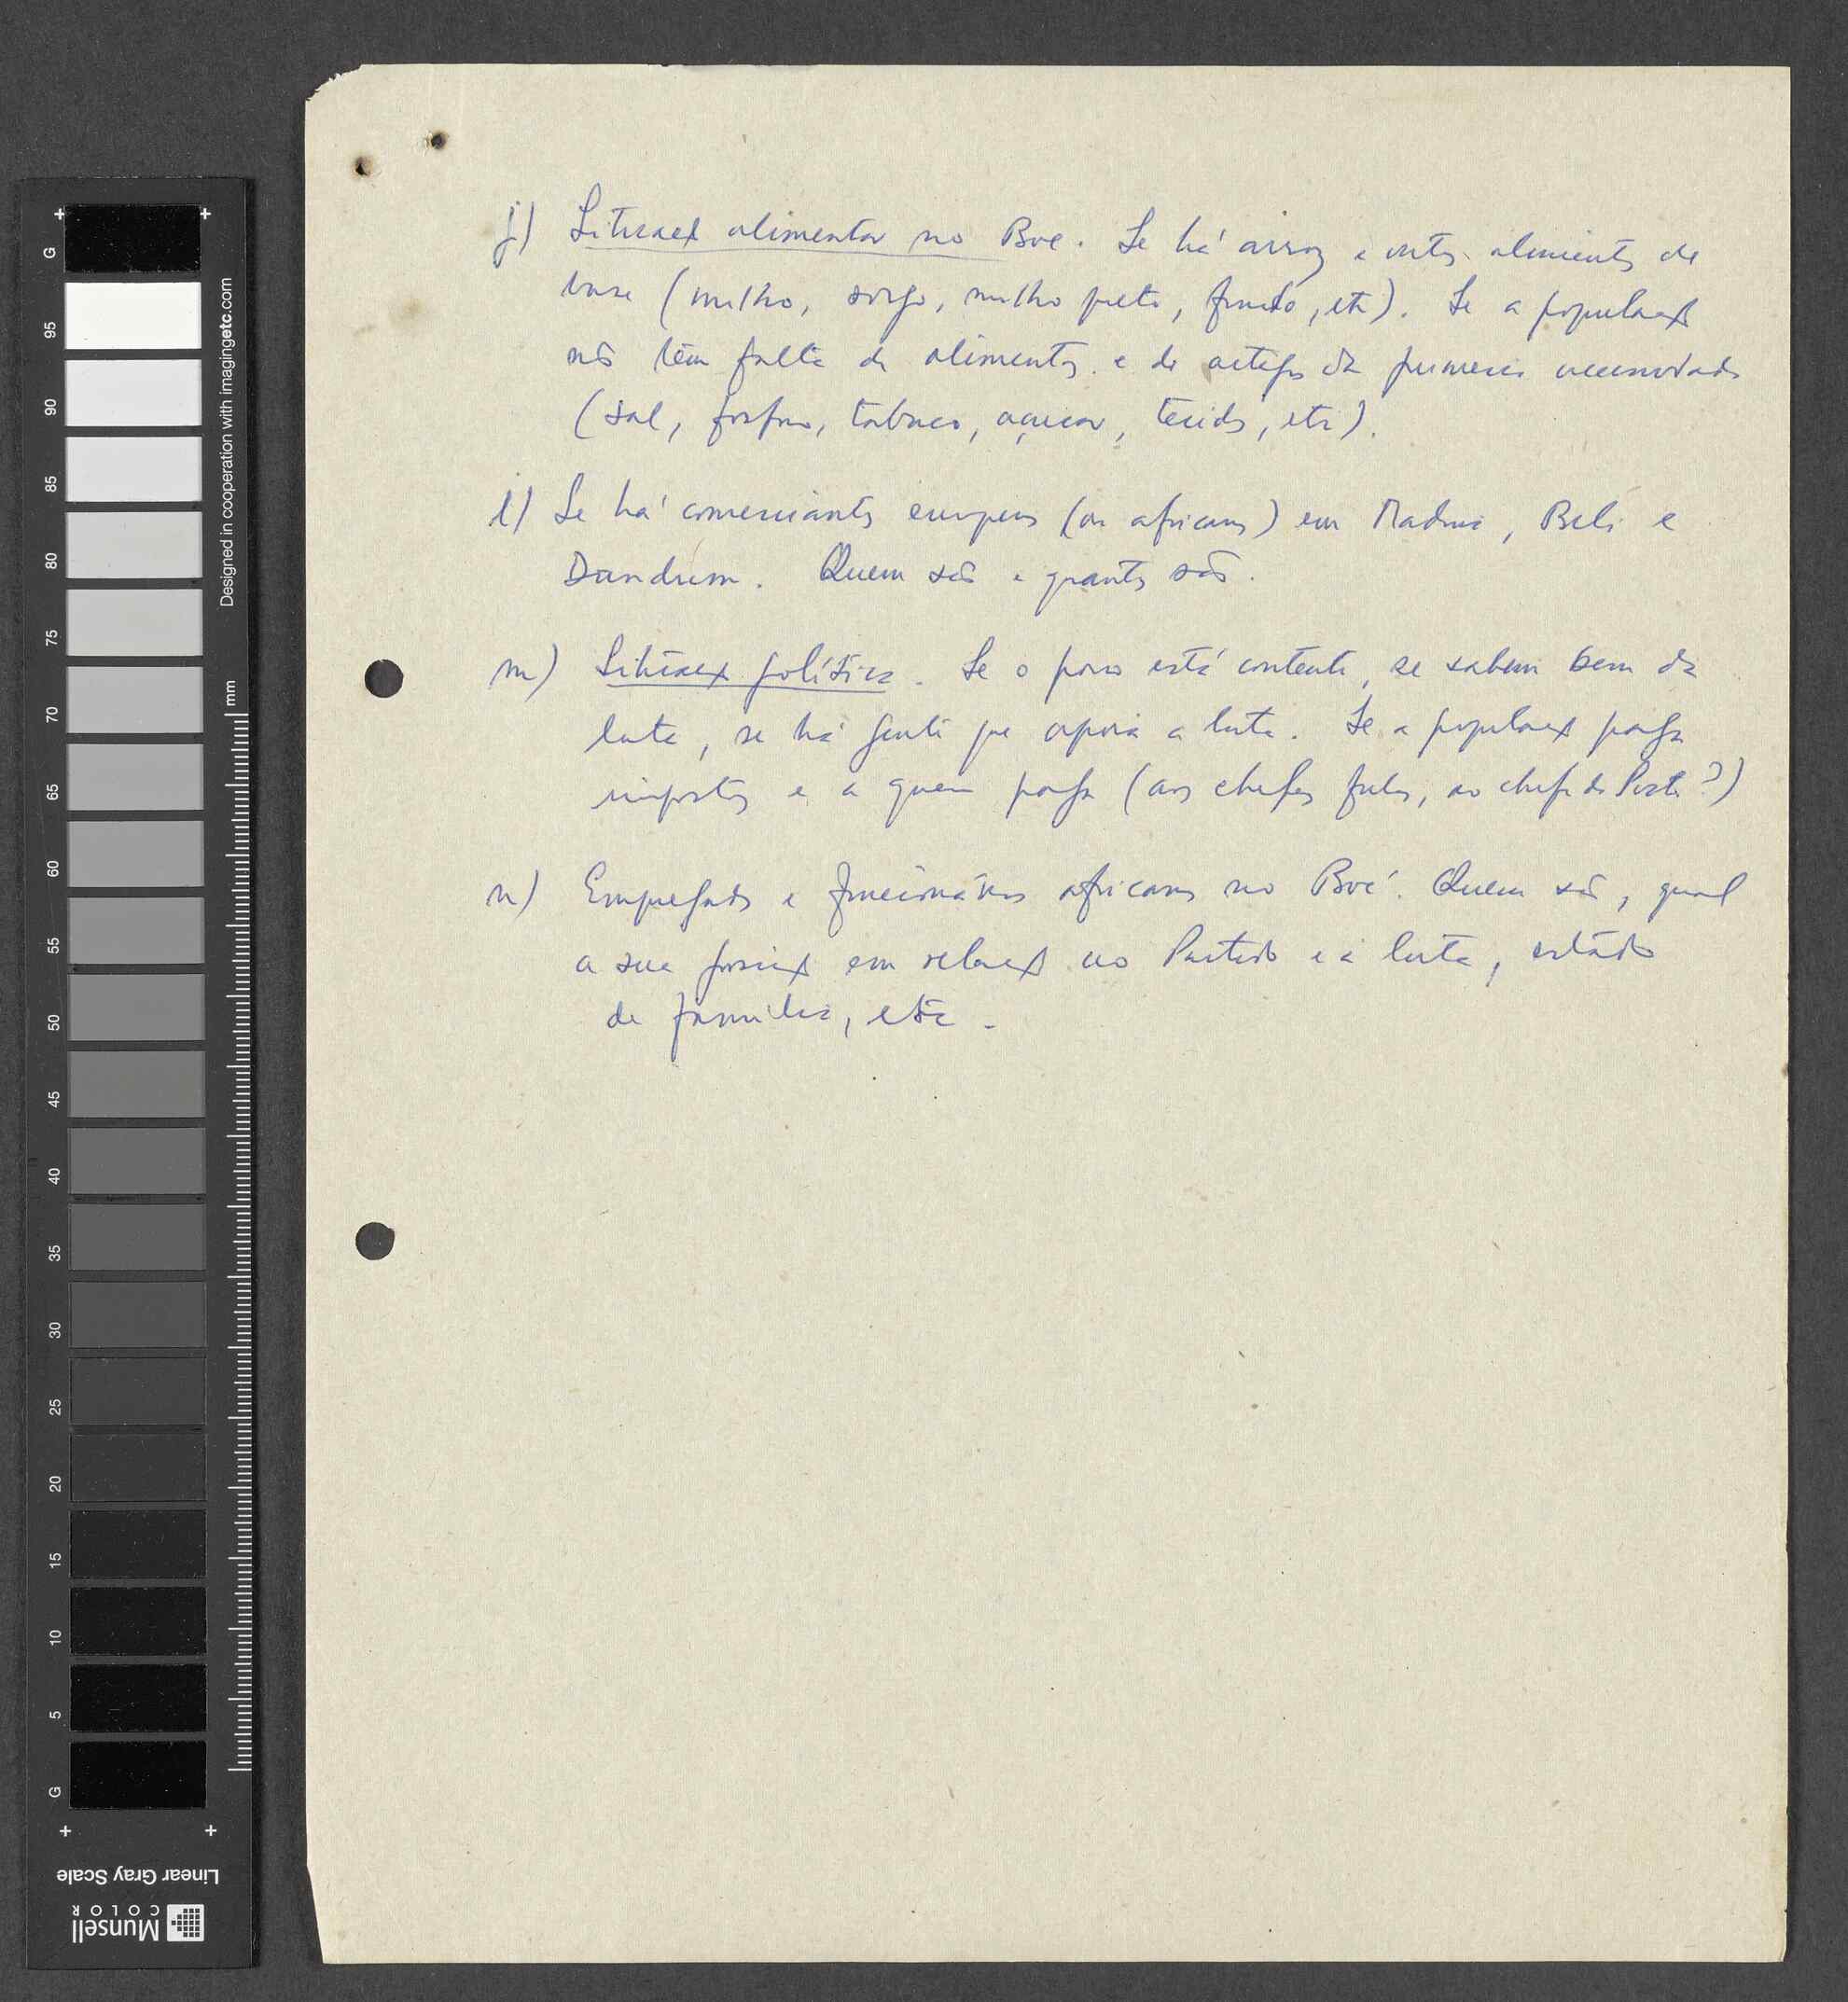 j) Situação alimentar no Boé. Se há arroz e outros alimentos de
base (milho, sorgo, milho preto, fundo, etc). Se a população
não têm falta de alimentos e de artigos de primeira necessidade
(sal, fósforo, tabaco, açucar, tecidos, etc).
l) Se há comerciantes europeus (ou africanos) em Madina, Beli e
Dandum. Quem são e quantos são.
m) Situação política. Se o povo está contente, se sabem bem da
luta, se há gente que apoia a luta. Se a população paga
impostos e a quem paga (aos chefes fulas, ao chefe de Posto?)
n) Empregados e funcionários africanos no Boé. Quem são, qual
a sua posição em relação ao Partido e à luta, estado
de família, etc.
G
95
90
85
80
75
70
65
60
55
50
45
40
35
30
25
20
15
10
5
G
Designed in cooperation with imagingetc.com
mm
Linear Gray Scale
Munsell
COLOR